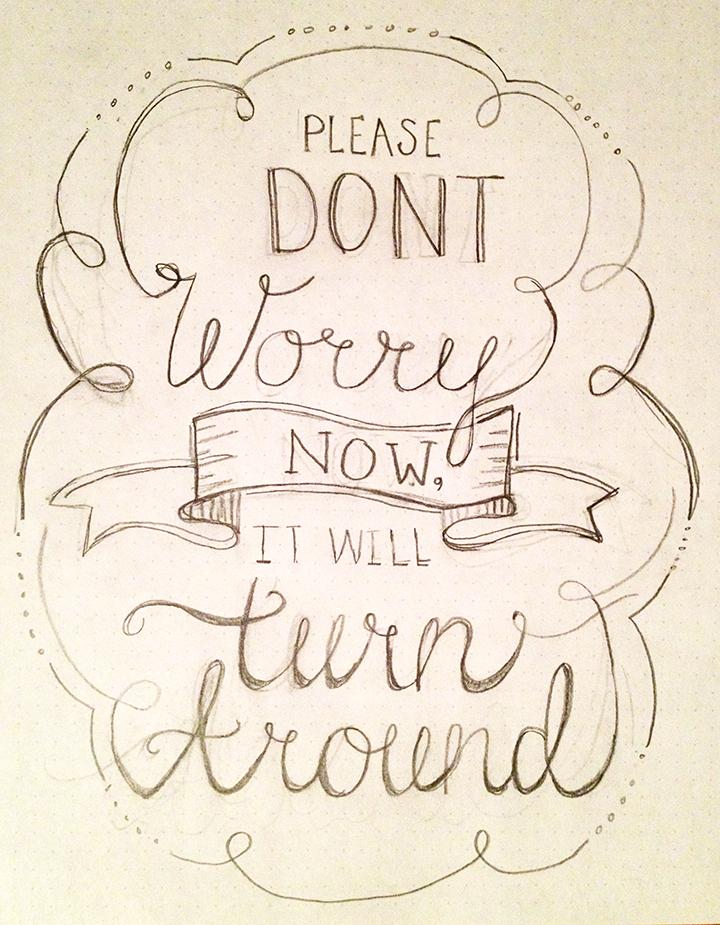 PLEASE
DONT
Worry
NOW,
IT WILL
turn
Around